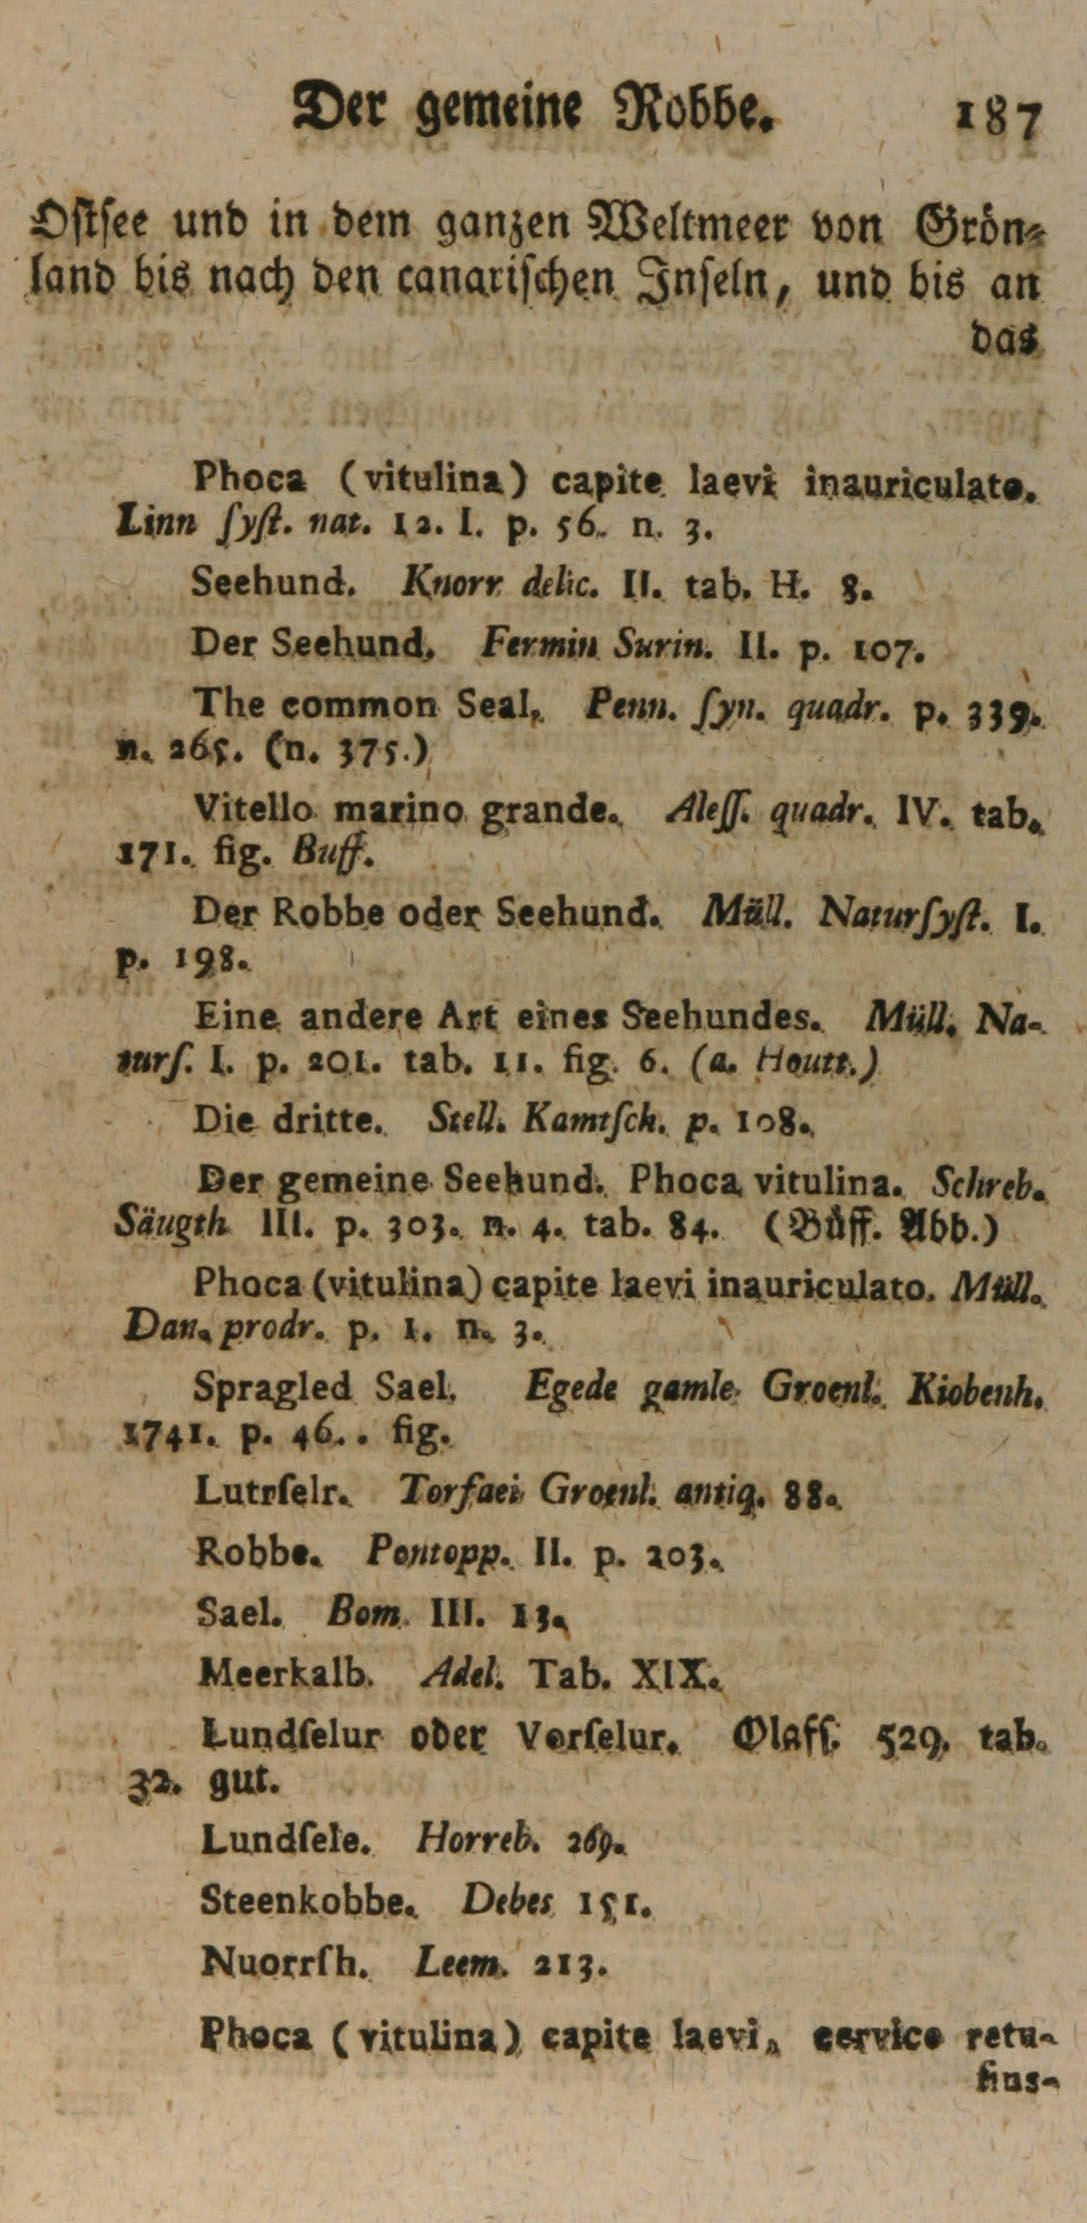 Der gemeine Robbe. 187
Ostsee und in dem ganzen Weltmeer von Grön-
land bis nach den canarischen Inseln, und bis an
das
Phoca (vitulina) capite laevi inauriculato.
Linn ſyſt. nat. 12. I. p. 56. n. 3.
Seehund. Knorr delic. II. tab. H. 8.
Der Seehund. Fermin Surin. II. p. 107.
The common Seal. Penn. ſyn. quadr. p. 339.
n. 265. (n. 375.)
Vitello marino grande. Aleſſ. quadr. IV. tab.
171. fig. Buff.
Der Robbe oder Seehund. Müll. Naturſyſt. I.
p. 198.
Eine andere Art eines Seehundes. Müll. Na-
turſ. I. p. 201. tab. 11. fig. 6. (a. Houtt.)
Die dritte. Stell. Kamtſch. p. 108.
Der gemeine Seehund. Phoca vitulina. Schreb.
Säugth III. p. 303. n. 4. tab. 84. (Büff. Abb.)
Phoca (vitulina) capite laevi inauriculato. Müll.
Dan. prodr. p. 1. n. 3.
Spragled Sael. Egede gamle Groenl. Kiobenh.
1741. p. 46. . fig.
Lutrſelr. Torfaei Groenl. antiq. 88.
Robbe. Pontopp. II. p. 203.
Sael. Bom. III. 13.
Meerkalb. Adel. Tab. XIX.
Lundſelur oder Vorſelur. Olaſſ. 529. tab.
32. gut.
Lundſele. Horreb. 269.
Steenkobbe. Debes 151.
Nuorrſh. Leem. 213.
Phoca (vitulina) capite laevi, cervice retu-
sius-